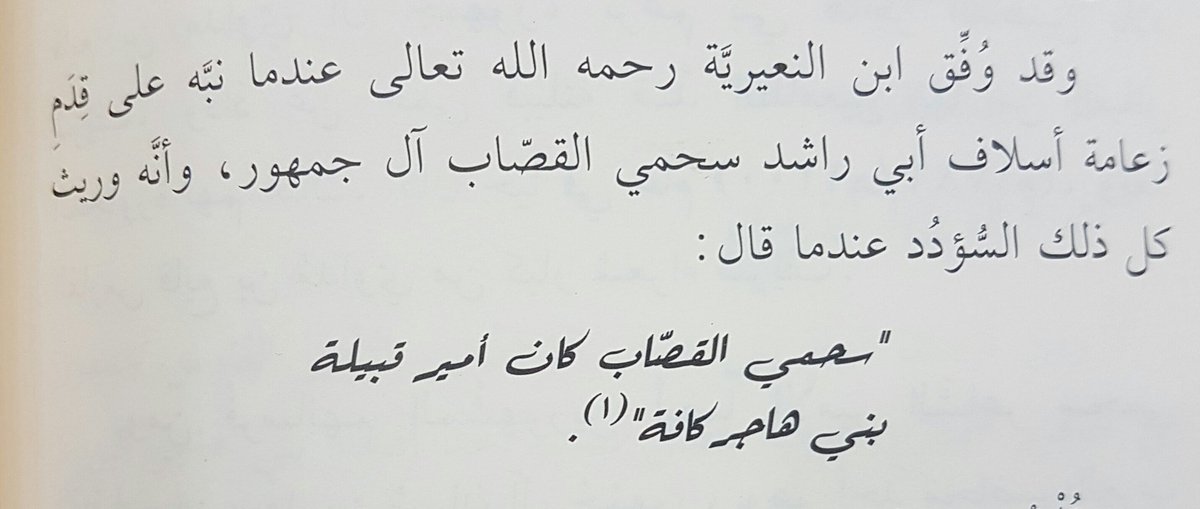 وقد وُفِّق ابن النعيريَّة رحمه الله تعالى عندما نبَّه على قِدَمِ
زعامة أسلاف أبي راشد سحمي القصّاب آل جمهور، وأنَّه وريث
كل ذلك السُّؤدُد عندما قال:
"سحمي القصّاب كان أمير قبيلة
بني هاجر كافة"(١).